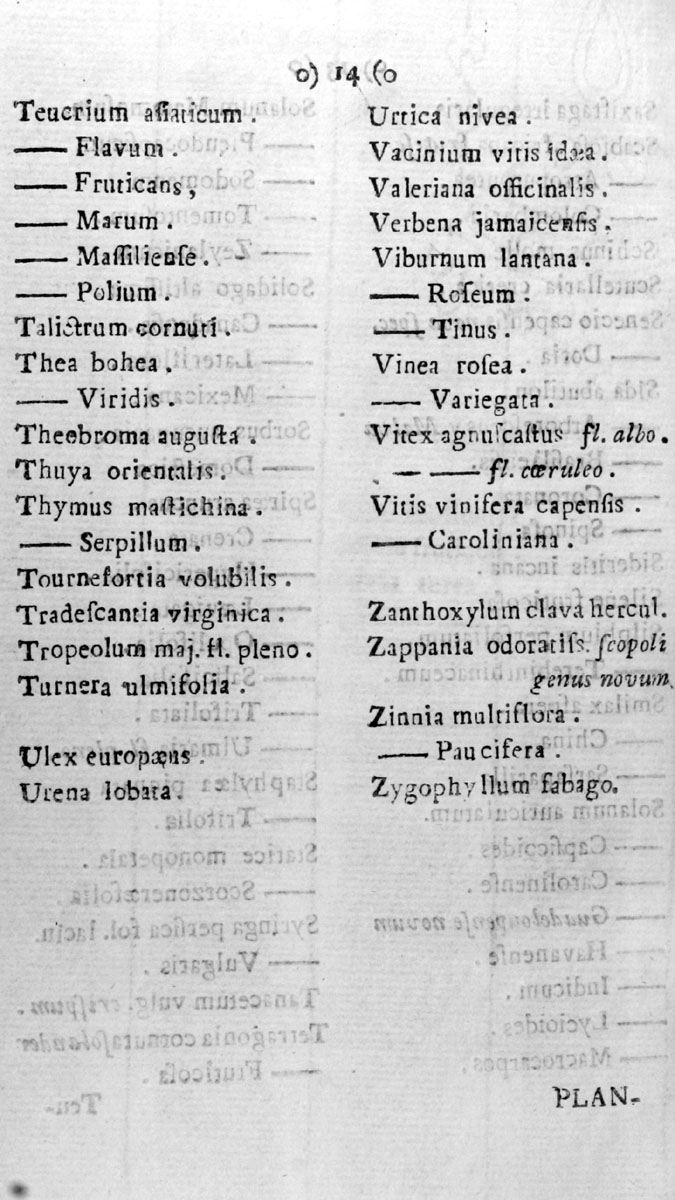 0) 14 (0
Teucrium aſiaticum.
—— Flavum.
—— Fruticans,
—— Marum.
—— Maſſilienſe.
—— Polium.
Talictrum cornuti.
Thea bohea.
—— Viridis.
Theobroma auguſta.
Thuya orientalis.
Thymus maſtichina.
—— Serpillum.
Tournefortia volubilis.
Tradeſcantia virginica.
Tropeolum maj. fl. pleno.
Turnera ulmifolia.
Ulex europæus.
Urena lobata.
Urtica nivea.
Vacinium vitis idæa.
Valeriana officinalis.
Verbena jamaicenſis.
Viburnum lantana.
—— Roſeum.
—— Tinus.
Vinea roſea.
—— Variegata.
Vitex agnuſcaſtus fl. albo.
— —— fl. cœruleo.
Vitis vinifera capenſis.
—— Caroliniana.
Zanthoxylum clava hercul.
Zappania odoratiſs. ſcopoli
genus novum
Zinnia multiflora.
—— Paucifera.
Zygophyllum fabago.
PLAN-